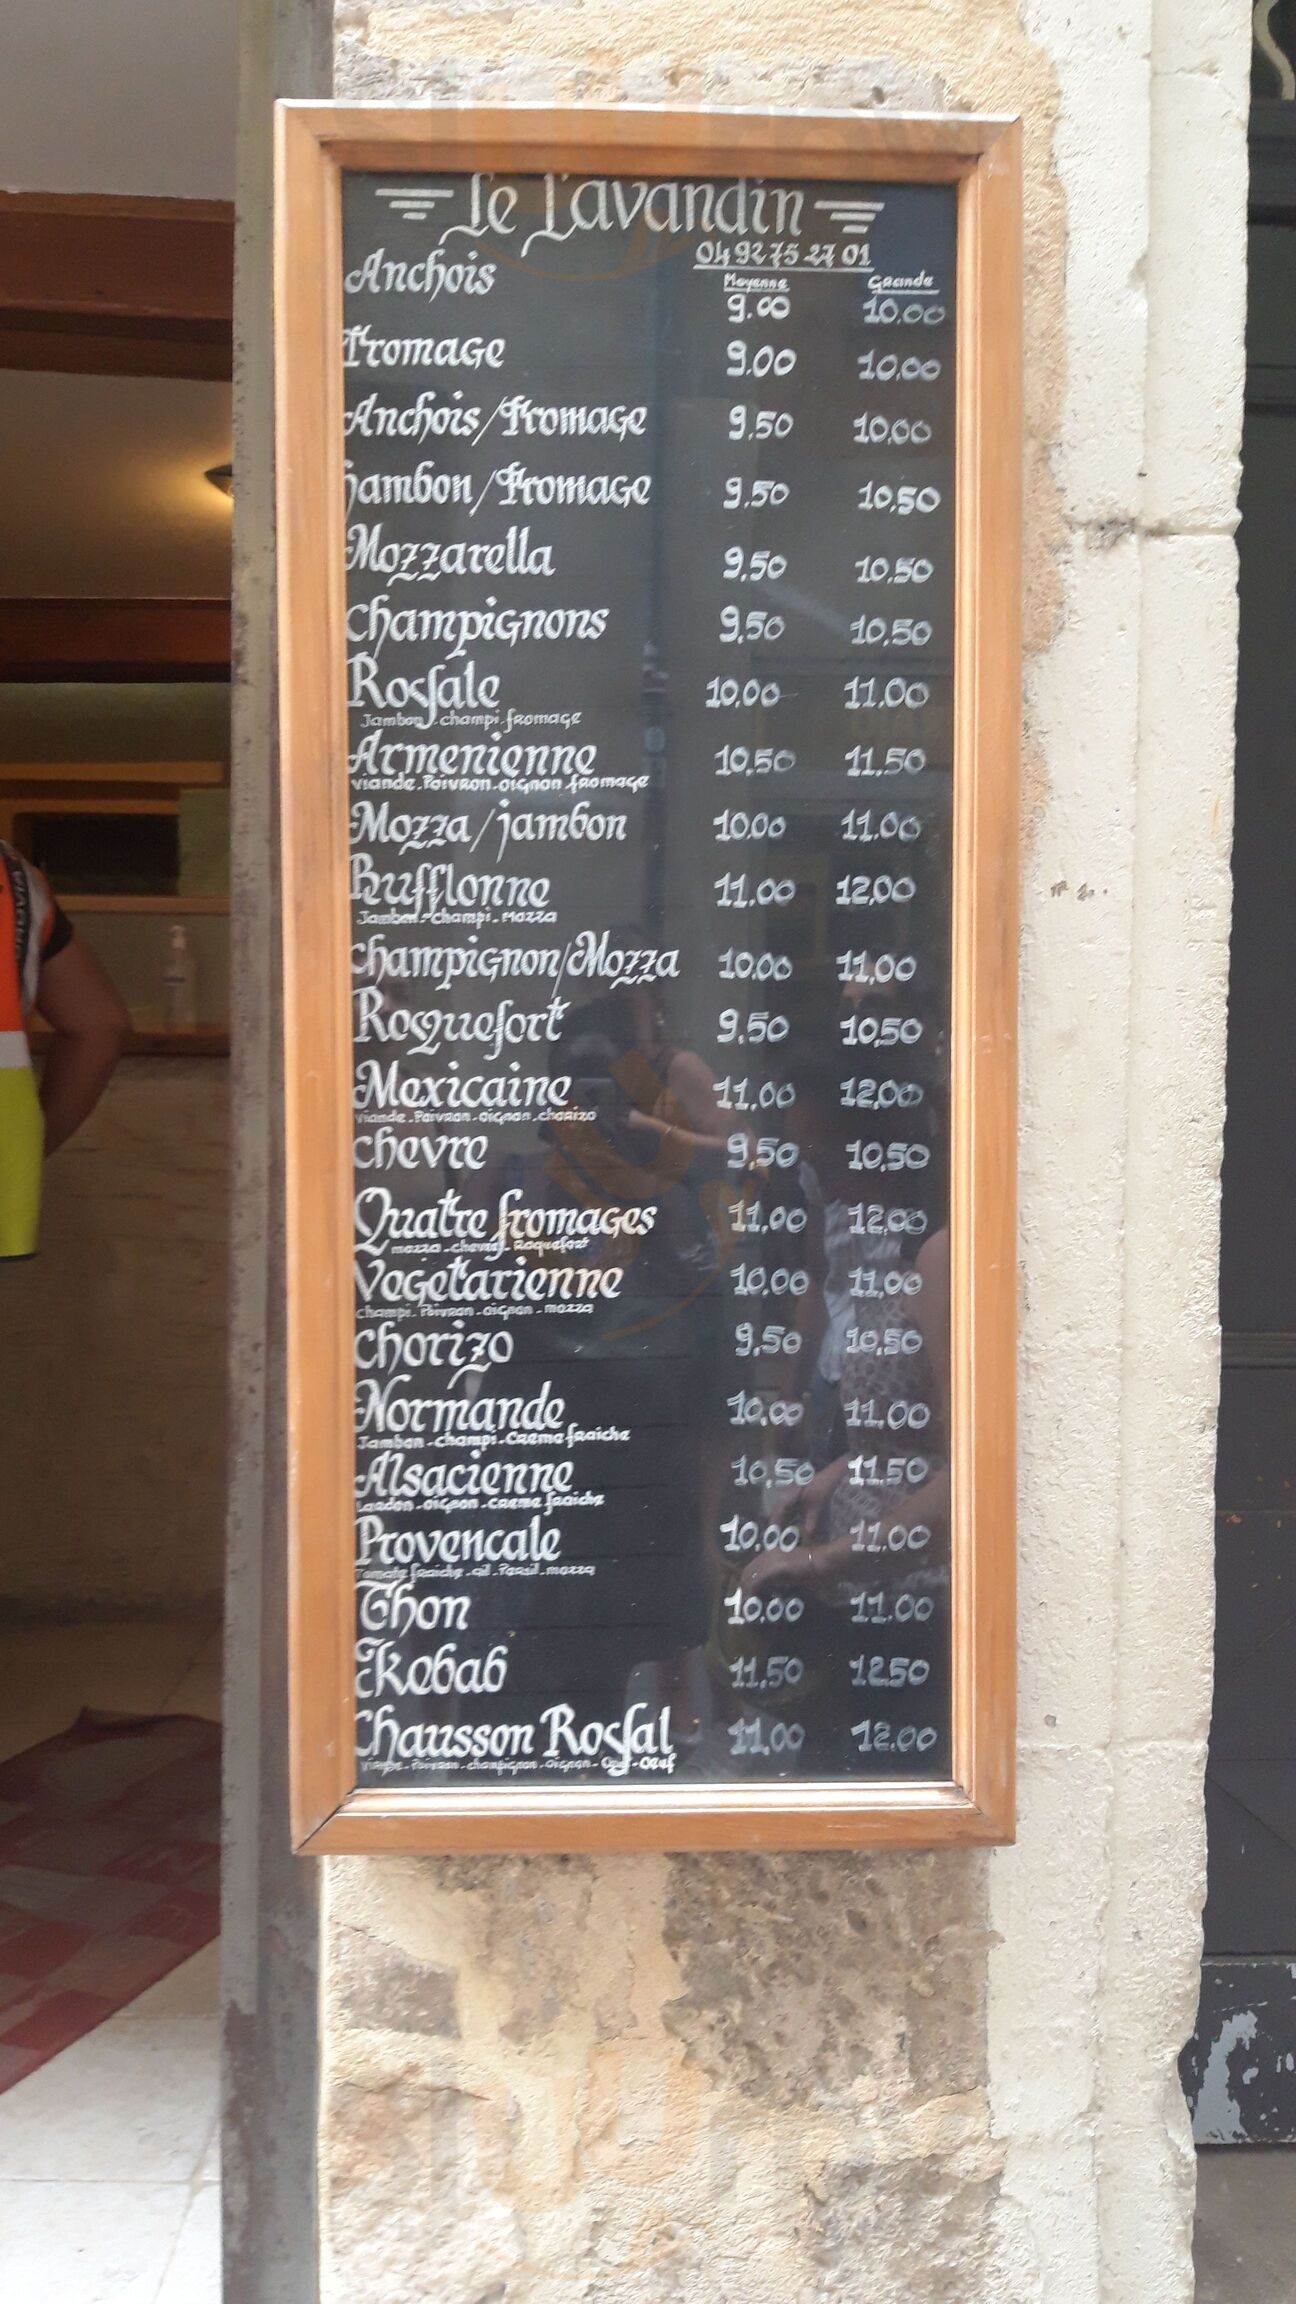 Le Lavandin
04 92 75 27 01
Moyenne Grande
Anchois 9.00 10.00
Fromage 9.00 10.00
Anchois/Fromage 9.50 10.00
Jambon/Fromage 9.50 10.50
Mozzarella 9.50 10.50
Champignons 9.50 10.50
Royale 10.00 11.00
Jambon-champi-fromage
Armenienne 10.50 11.50
Viande-Poivron-oignon-fromage
Mozza/jambon 10.00 11.00
Bufflonne 11.00 12.00
Jambon-champi-Mozza
Champignon/Mozza 10.00 11.00
Roquefort 9.50 10.50
Mexicaine 11.00 12.00
Viande-Poivron-oignon-chorizo
Chevre 9.50 10.50
Quatre fromages 11.00 12.00
mozza-chevre-Roquefort
Vegetarienne 10.00 11.00
champi-Poivron-oignon-mozza
Chorizo 9.50 10.50
Normande 10.00 11.00
Jambon-champi-Creme fraiche
Alsacienne 10.50 11.50
Lardon-oignon-creme fraiche
Provencale 10.00 11.00
Tomate fraiche-ail-Persil-mozza
Thon 10.00 11.00
Kebab 11.50 12.50
Chausson Royal 11.00 12.00
Viande-Poivron-champignon-oignon- -Oeuf